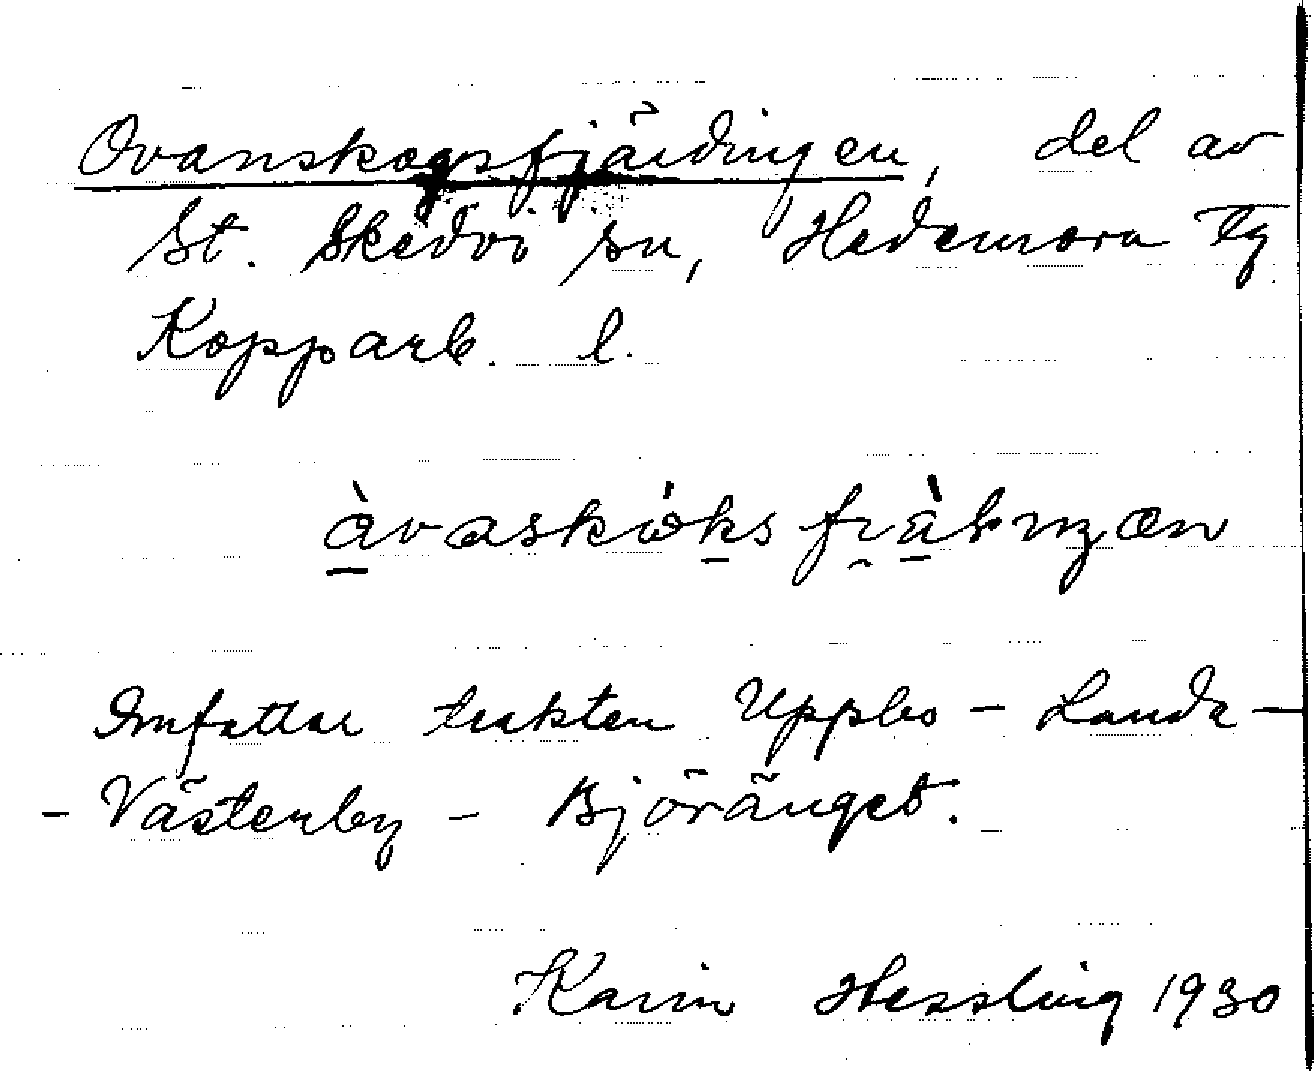 Ovanskogsfjärdingen, del av
St. Skedvi sn, Hedemora tg
Kopparb. l.
Omfattar trakten Uppbo - Landa -
- Västerby - Björänget.
Karin Hessling 1930